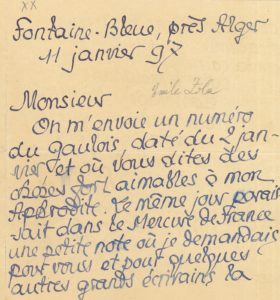 xx
Fontaine-Bleue, près Alger
11 janvier 97
Emile Zola
Monsieur
On m'envoie un numéro
du Gaulois, daté du 2 jan-
vier et où vous dites des
choses fort aimables à mon
Aphrodite. Le même jour parais-
sait dans le Mercure de France
une petite note où je demandais
pour vous et pour quelques
autres grands écrivains la